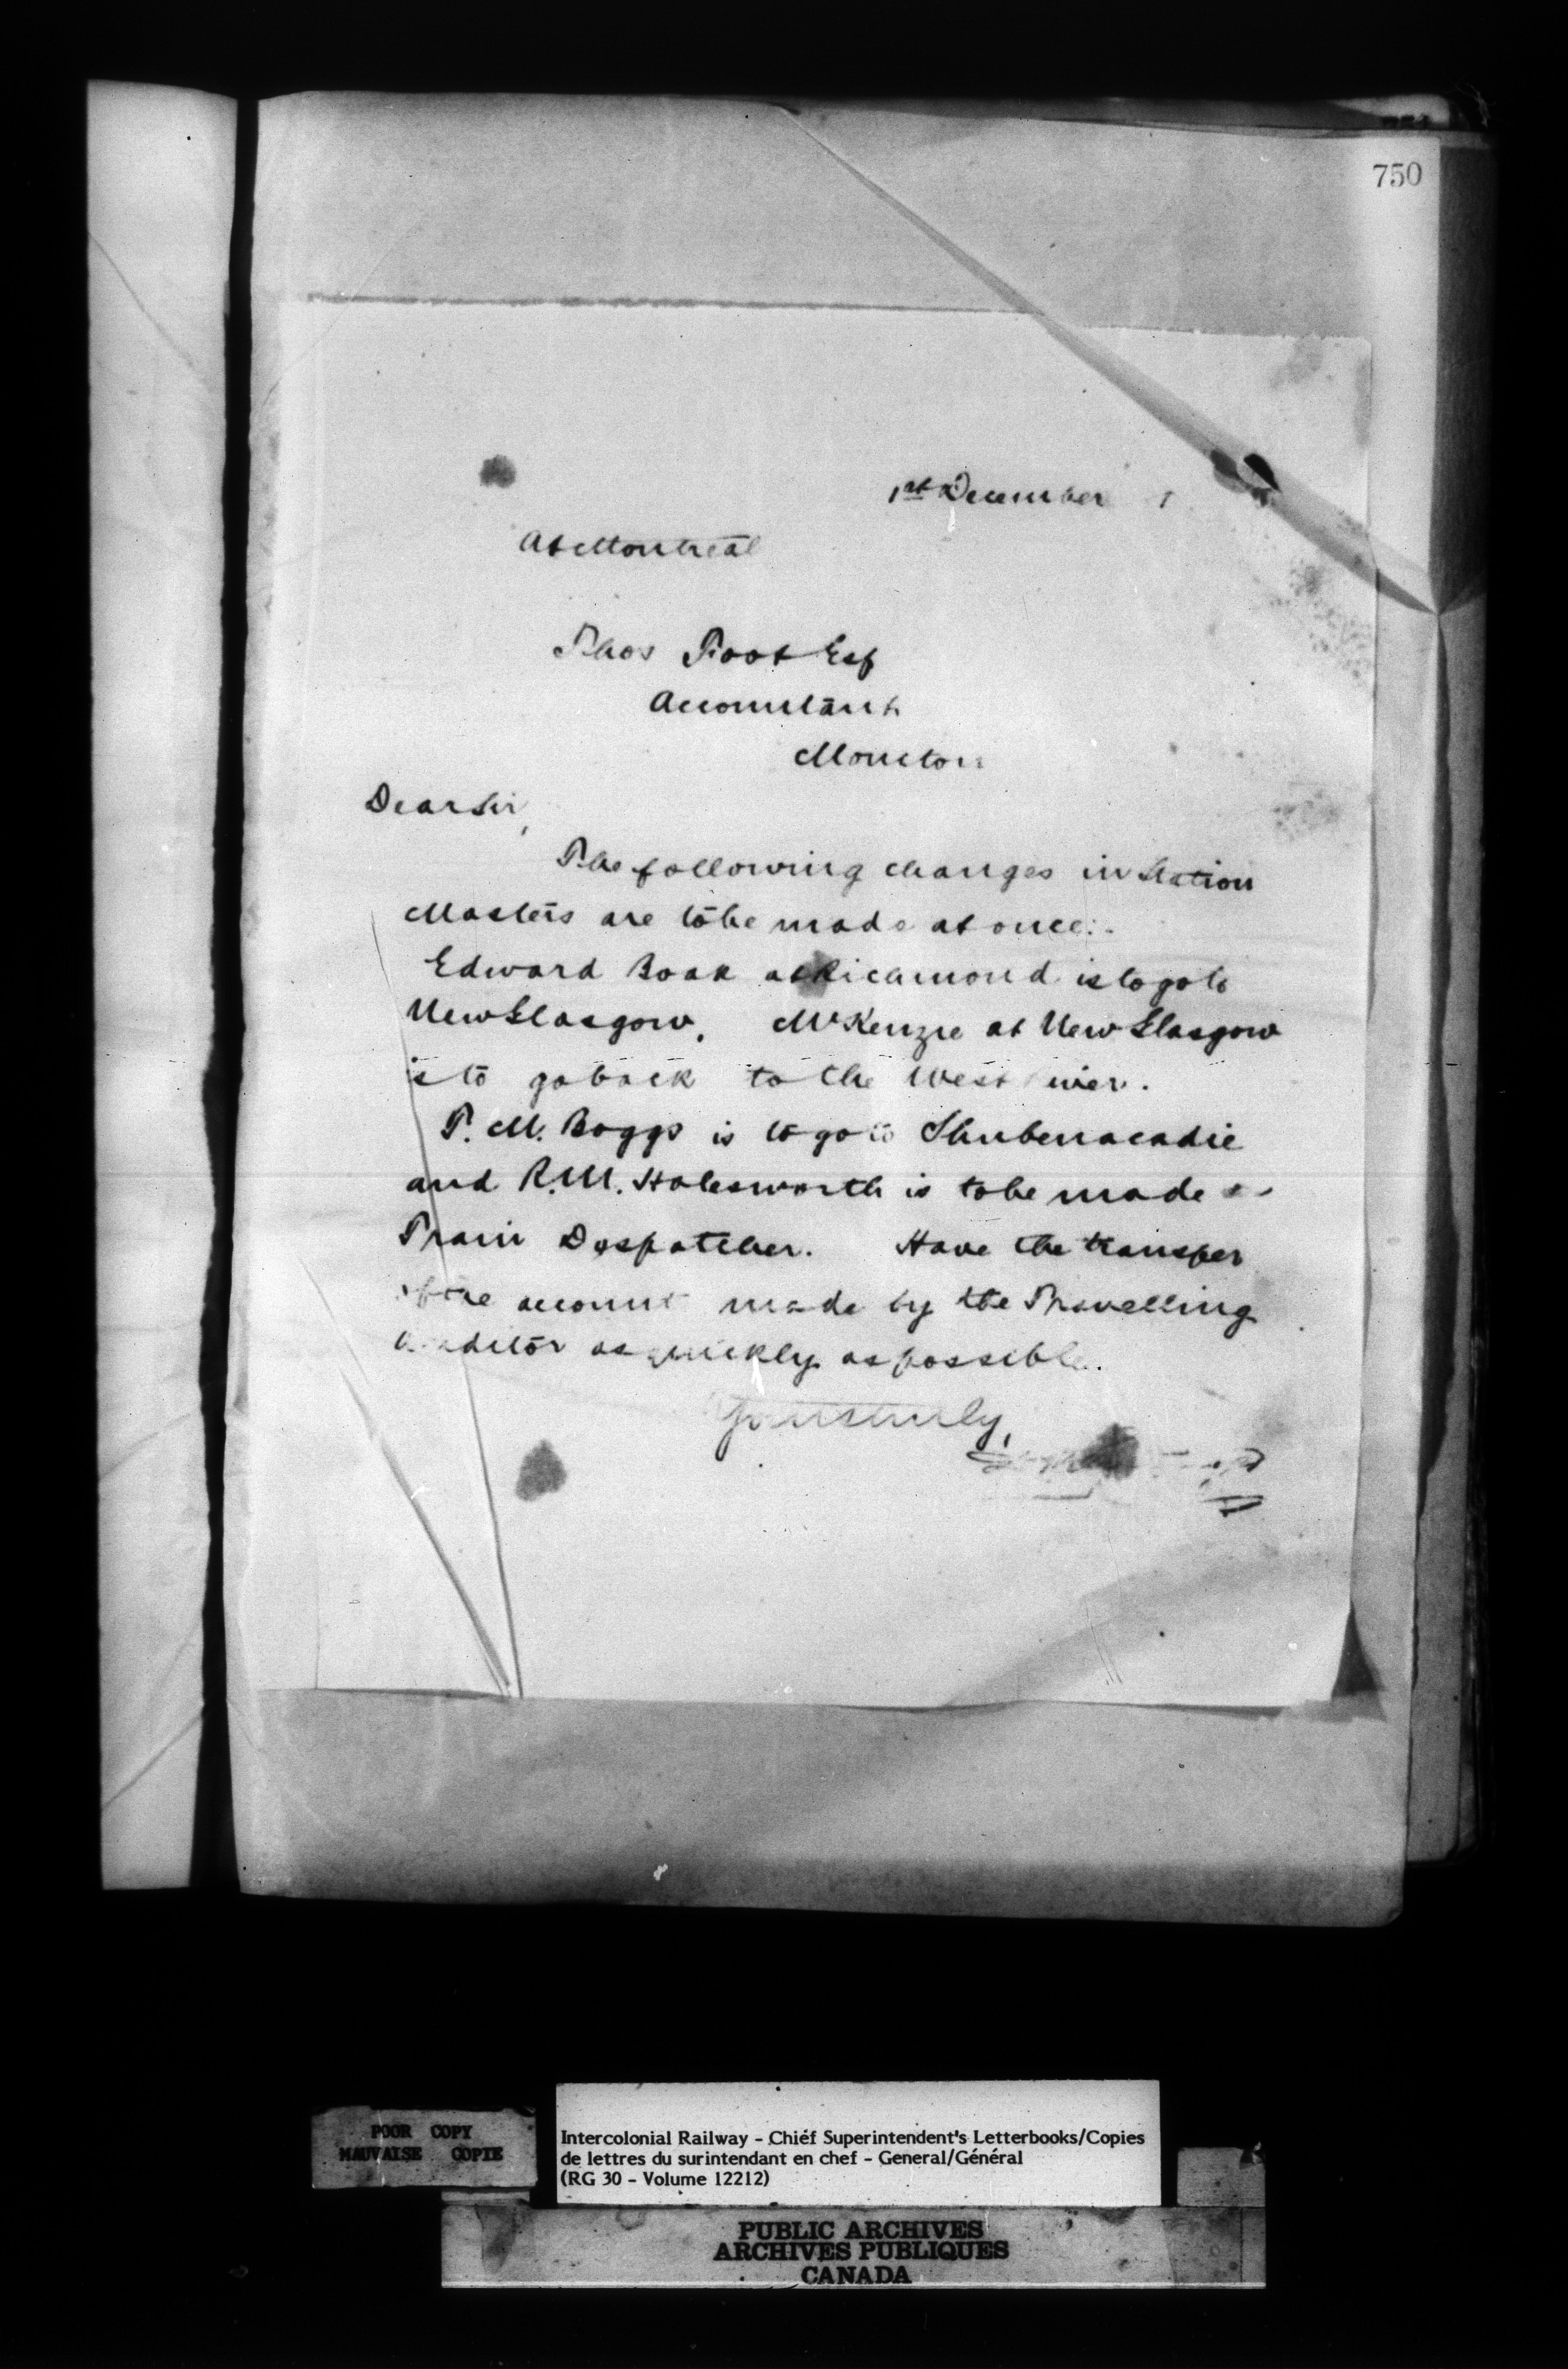 750
1st December
At Montreal
Thos Foot Esq
Accountant
Moncton
Dear Sir,
The following changes in Station
Masters are to be made at once:-
Edward Boak at Richmond is to go to
New Glasgow, McKenzie at New Glasgow
is to go back to the West River.
T. M. Boggs is to go to Shubenacadie
and R. M. Holesworth is to be made a
Train Despatcher. Have the transfer
of the account made by the Travelling
Auditor as quickly as possible.
Yours truly,
POOR COPY
MAUVAISE COPIE
Intercolonial Railway - Chief Superintendent's Letterbooks/Copies
de lettres du surintendant en chef - General/Général
(RG 30 - Volume 12212)
PUBLIC ARCHIVES
ARCHIVES PUBLIQUES
CANADA